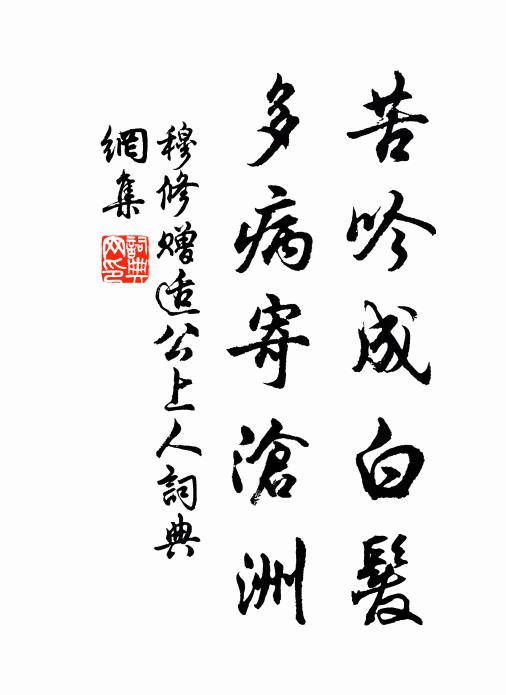 苦吟成白髮
多病寄滄洲
穆修贈适公上人詞典
網集
詞典
网印